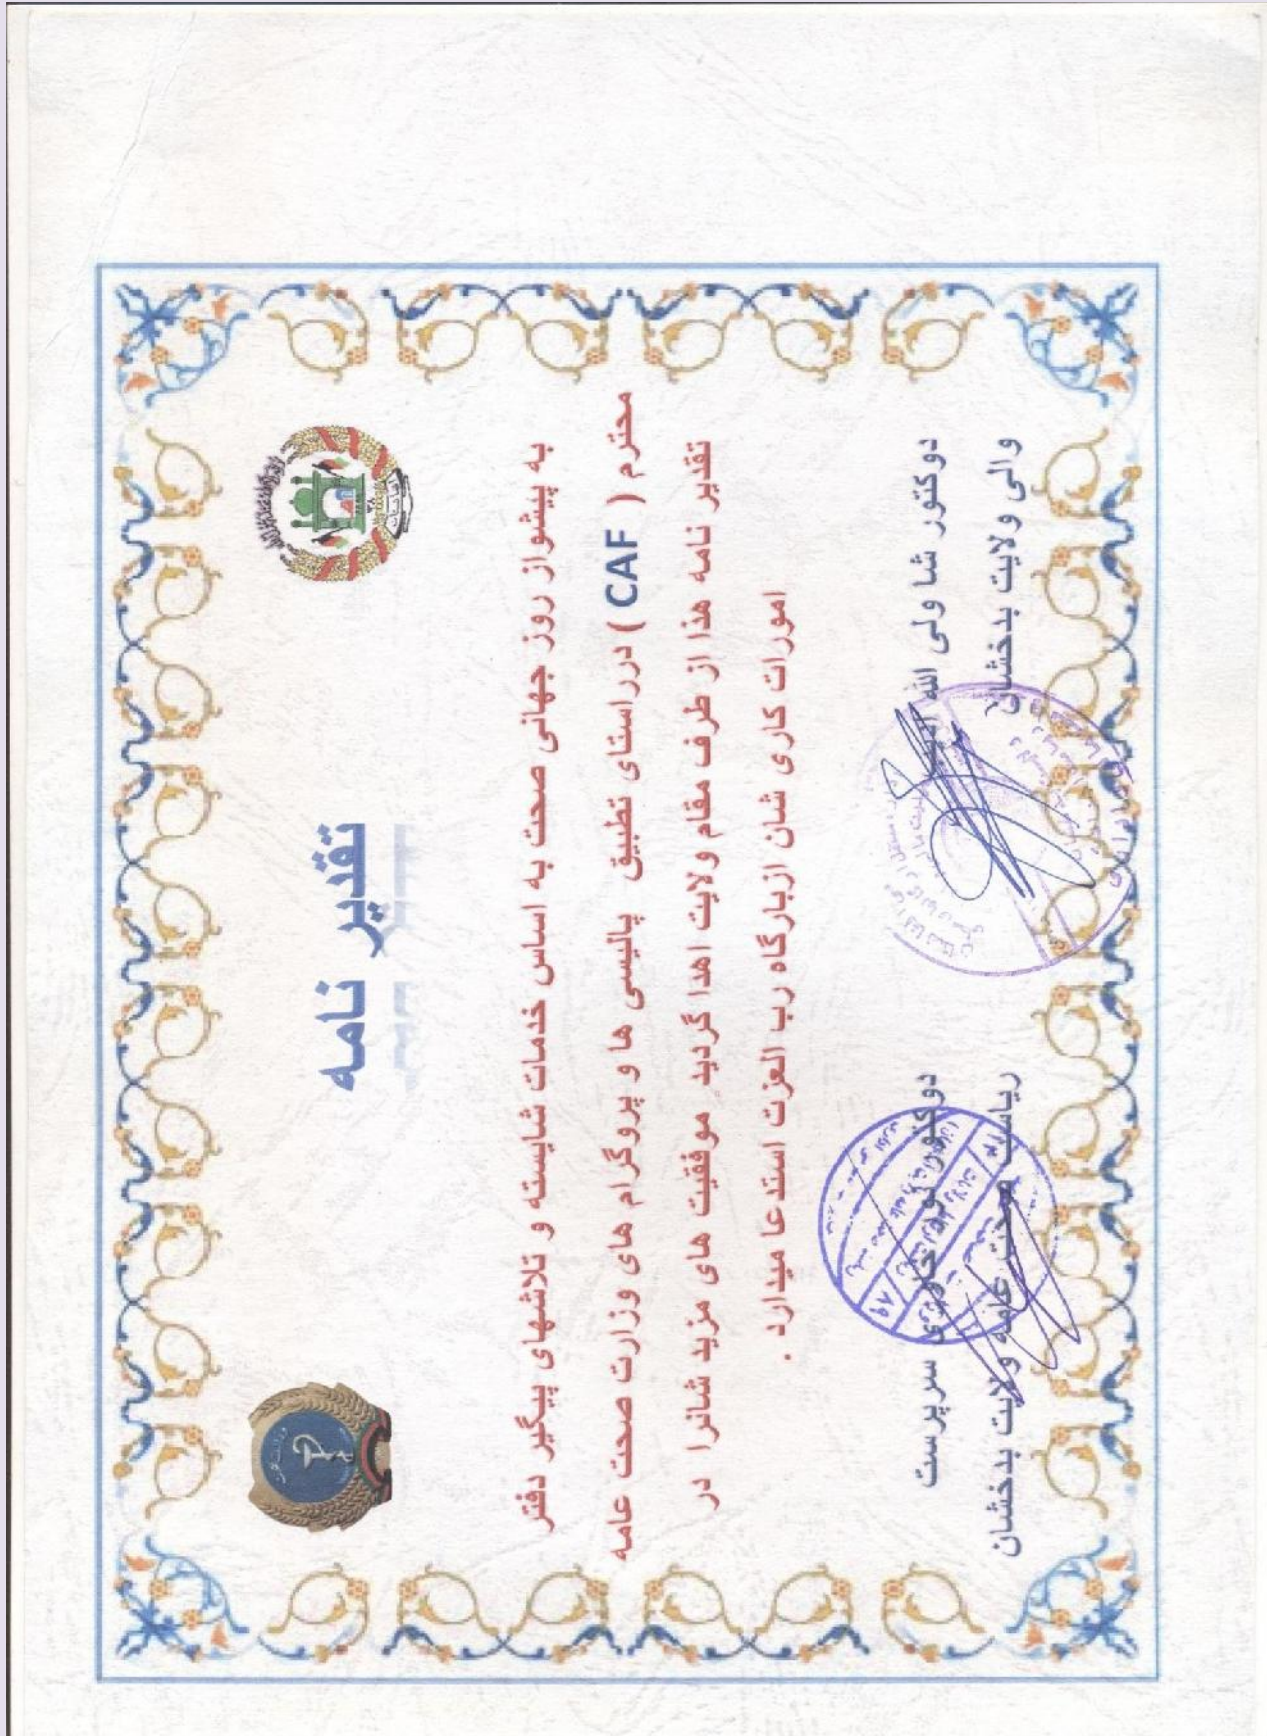 تقدیر نامه
به پیشواز روز جهانی صحت به اساس خدمات شایسته و تلاشهای پیگیر دفتر
محترم ( CAF ) درراستای تطبیق پالیسی ها و پروگرام های وزارت صحت عامه
تقدیر نامه هذا از طرف مقام ولایت اهدا گردید موفقیت های مزید شانرا در
امورات کاری شان ازبارگاه رب العزت استدعا میدارد .
دوکتور شا ولی الله
والی ولایت بدخشان
دوکتور سرپرست
ریاست صحت عامه ولایت بدخشان